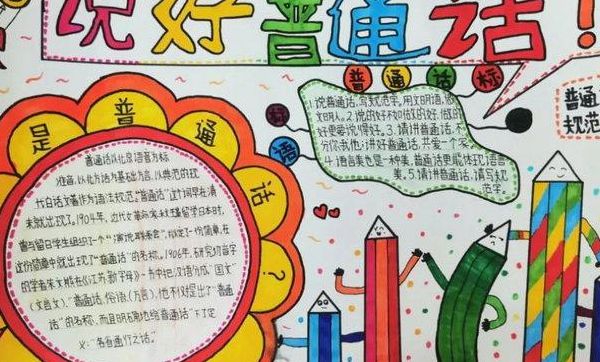 说好普通话!
普通话标
语
1.说普通话,写规范字,用文明语,做
文明人。2.说的好不如做的好,做的
好更要说得好。3.请讲普通话,不
你我他;讲好普通话,共爱一个家。
4.语言美也是一种美,普通话更能体现语言
美。5.请讲普通话,请写规
范字。
普通
规范
是普通话?
普通话以北京语音为标
准音,以北方话为基础方言,以典范的现
代白话文著作为语法规范。"普通话"这个词早在清
末就出现了。1904年,近代女革命家秋瑾留学日本时,
曾与留日学生组织了一个"演说联系会",拟定一份简章,在
这份简章中就出现了"普通话"的名称。1906年,研究切音字
的学者朱文熊在《江苏新字母》一书中把汉语分成"国文"
(文言文)、"普通话"、俗语(方言),他不仅提出了"普通
话"的名称,而且明确地给普通话"下了定
义:"各省通行之话。"